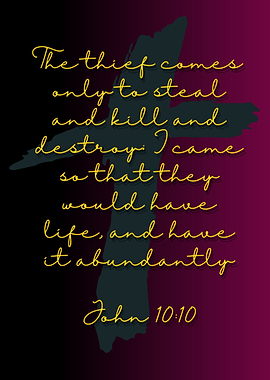 The thief comes
only to steal
and kill and
destroy. I came
so that they
would have
life, and have
it abundantly
John 10:10